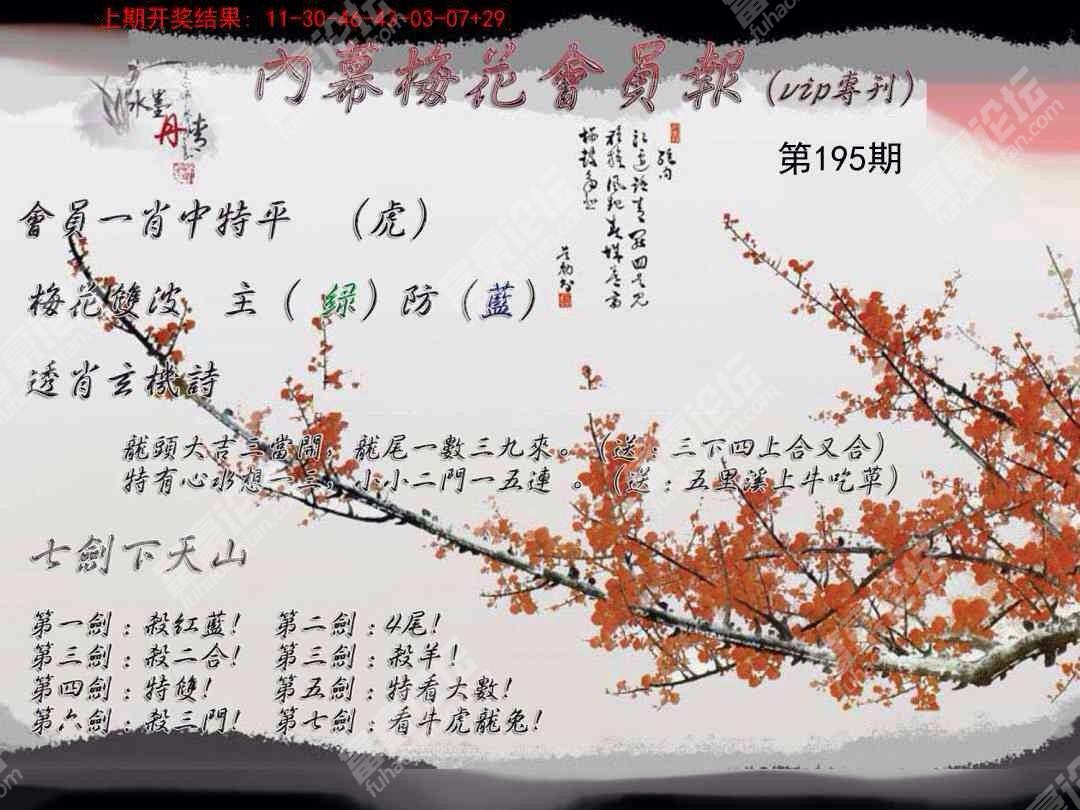 上期开奖结果: 11-30-46-43-03-07+29
內幕梅花會員報(vip專刊)
水墨丹青
第195期
會員一肖中特平 (虎)
梅花雙波 主(綠)防(藍)
透肖玄機詩
龍頭大吉三當開,龍尾一數三九來。(送:三下四上合又合)
特有心水想一三,小小二門一五連。(送:五里溪上牛吃草)
七劍下天山
第一劍:殺紅藍! 第二劍:4尾!
第三劍:殺二合! 第三劍:殺羊!
第四劍:特雙! 第五劍:特看大數!
第六劍:殺三門! 第七劍:看牛虎龍兔!
富豪论坛
fuhao.com